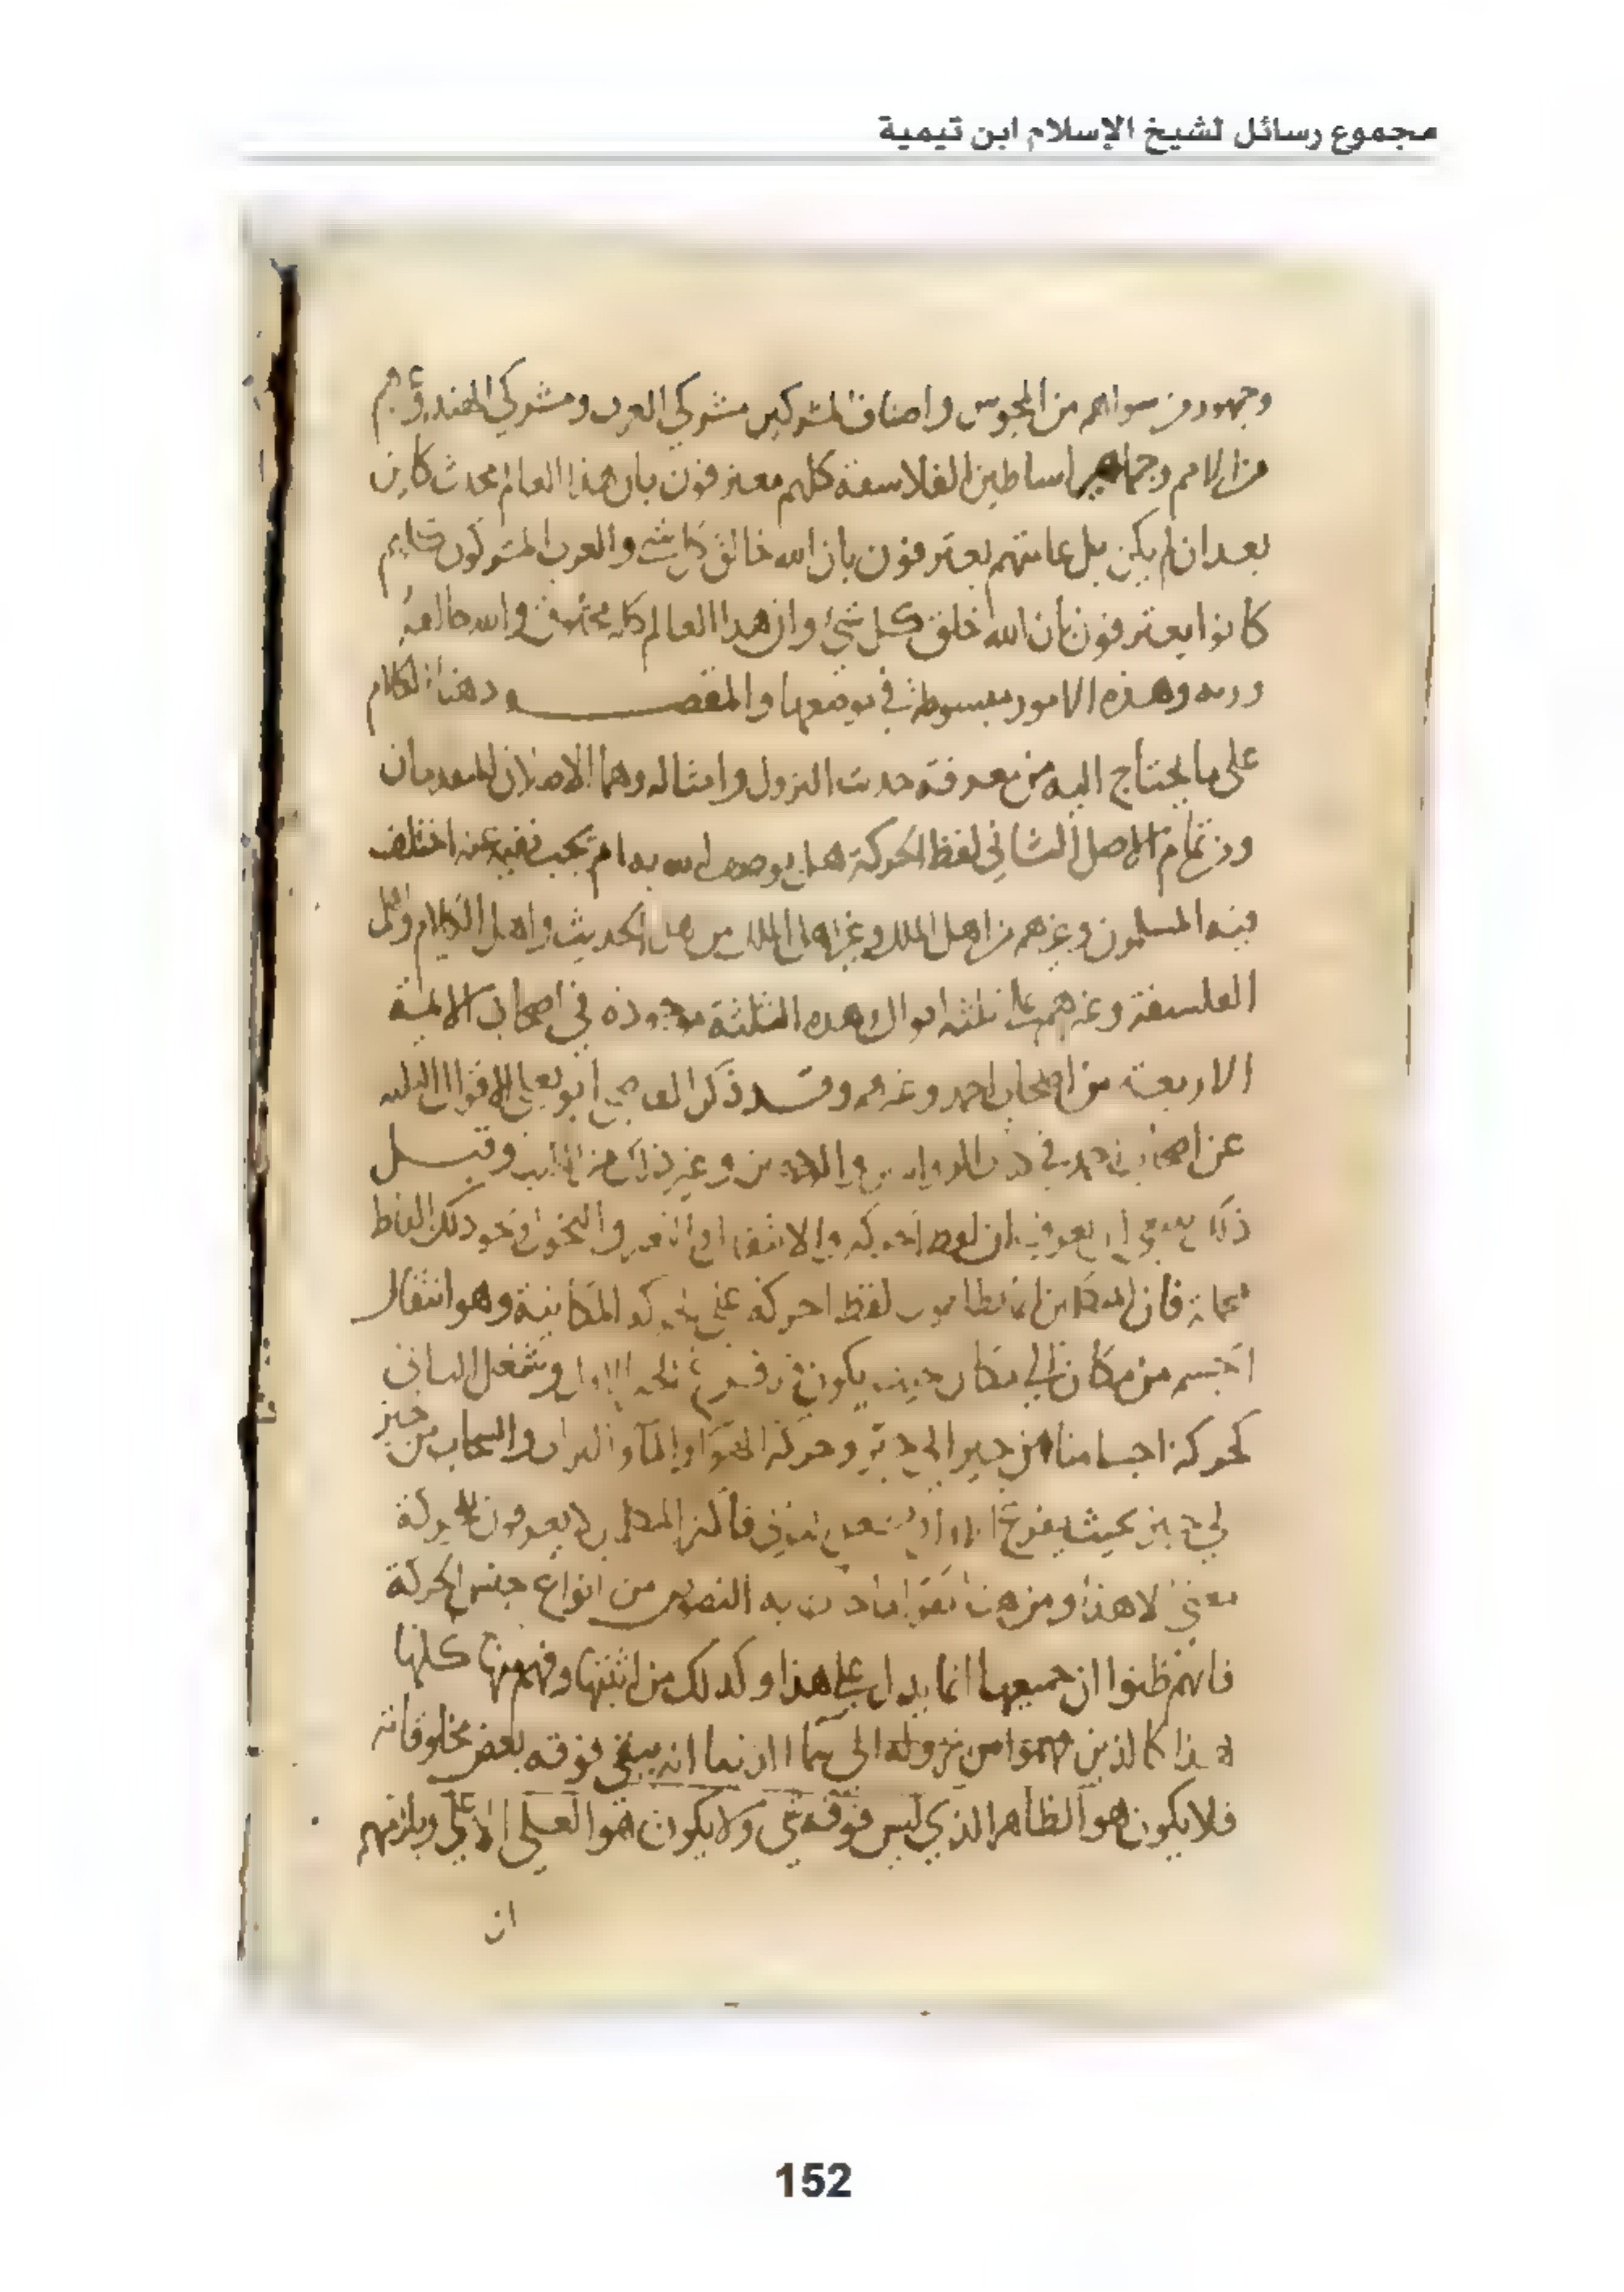 مجموع رسائل لشيخ الإسلام ابن تيمية
وجمهور من سواهم من المجوس واصناف المشركين مشركي العرب ومشركي الهند وغيرهم
من الامم وجماهير اساطين الفلاسفة كلهم معترفون بان هذا العالم محدث كاين
بعد ان لم يكن بل عامتهم يعترفون بان الله خالق كل شي والعرب المشركون كلهم
كانوا يعترفون بان الله خلق كل شيء وان هذا العالم كله مخلوق والله خالقه
وربه وهذه الامور مبسوطة في موضعها والمقصود هنا الكلام
على ما يحتاج اليه من معرفة حديث النزول وامثاله وهما الاصلان المتقدمان
ومن تمام الاصل الثاني لفظ الحركة هل يوصف الله به ام يجب نفيه عنه اختلف
فيه المسلمون وغيرهم من اهل الملل وغير اهل الملل من اهل الحديث واهل الكلام واهل
الفلسفة وغيرهم على ثلثة اقوال وهذه الثلثة موجودة في اصحاب الائمة
الاربعة من اصحاب احمد وغيرهم وقد ذكر القاضي ابو يعلى الاقوال الثلثة
عن اصحاب احمد في وغير ذلك من الكتب وقبل
ذلك ان يعرف ان لفظ الحركة والانتقال والتغير والتحول ونحو ذلك الفاظ
مجملة فان المتكلمين انما يطلقون لفظ الحركة على الحركة المكانية وهو انتقال
الجسم من مكان الى مكان بحيث يكون قد فرغ الاول وشغل الثاني
كحركة اجسامنا من حيز الى حيز وحركة الهواء والماء والتراب والسحاب من حيز
الى حيز بحيث يفرغ الاول ويشغل الثاني فاكثر المتكلمين لا يعرفون للحركة
معنى الا هذا ومن هنا نفوا ما جاءت به النصوص من انواع جنس الحركة
فانهم ظنوا ان جميعها انما يدل على هذا وكذلك من اثبتها وفهم منها كلها
هذا كالذين فهموا من نزوله الى سماء الدنيا انه يبقى فوقه بعض مخلوقاته
فلا يكون هو الظاهر الذي ليس فوقه شي ولا يكون هو العلي الاعلى ويلزمهم
ان
152